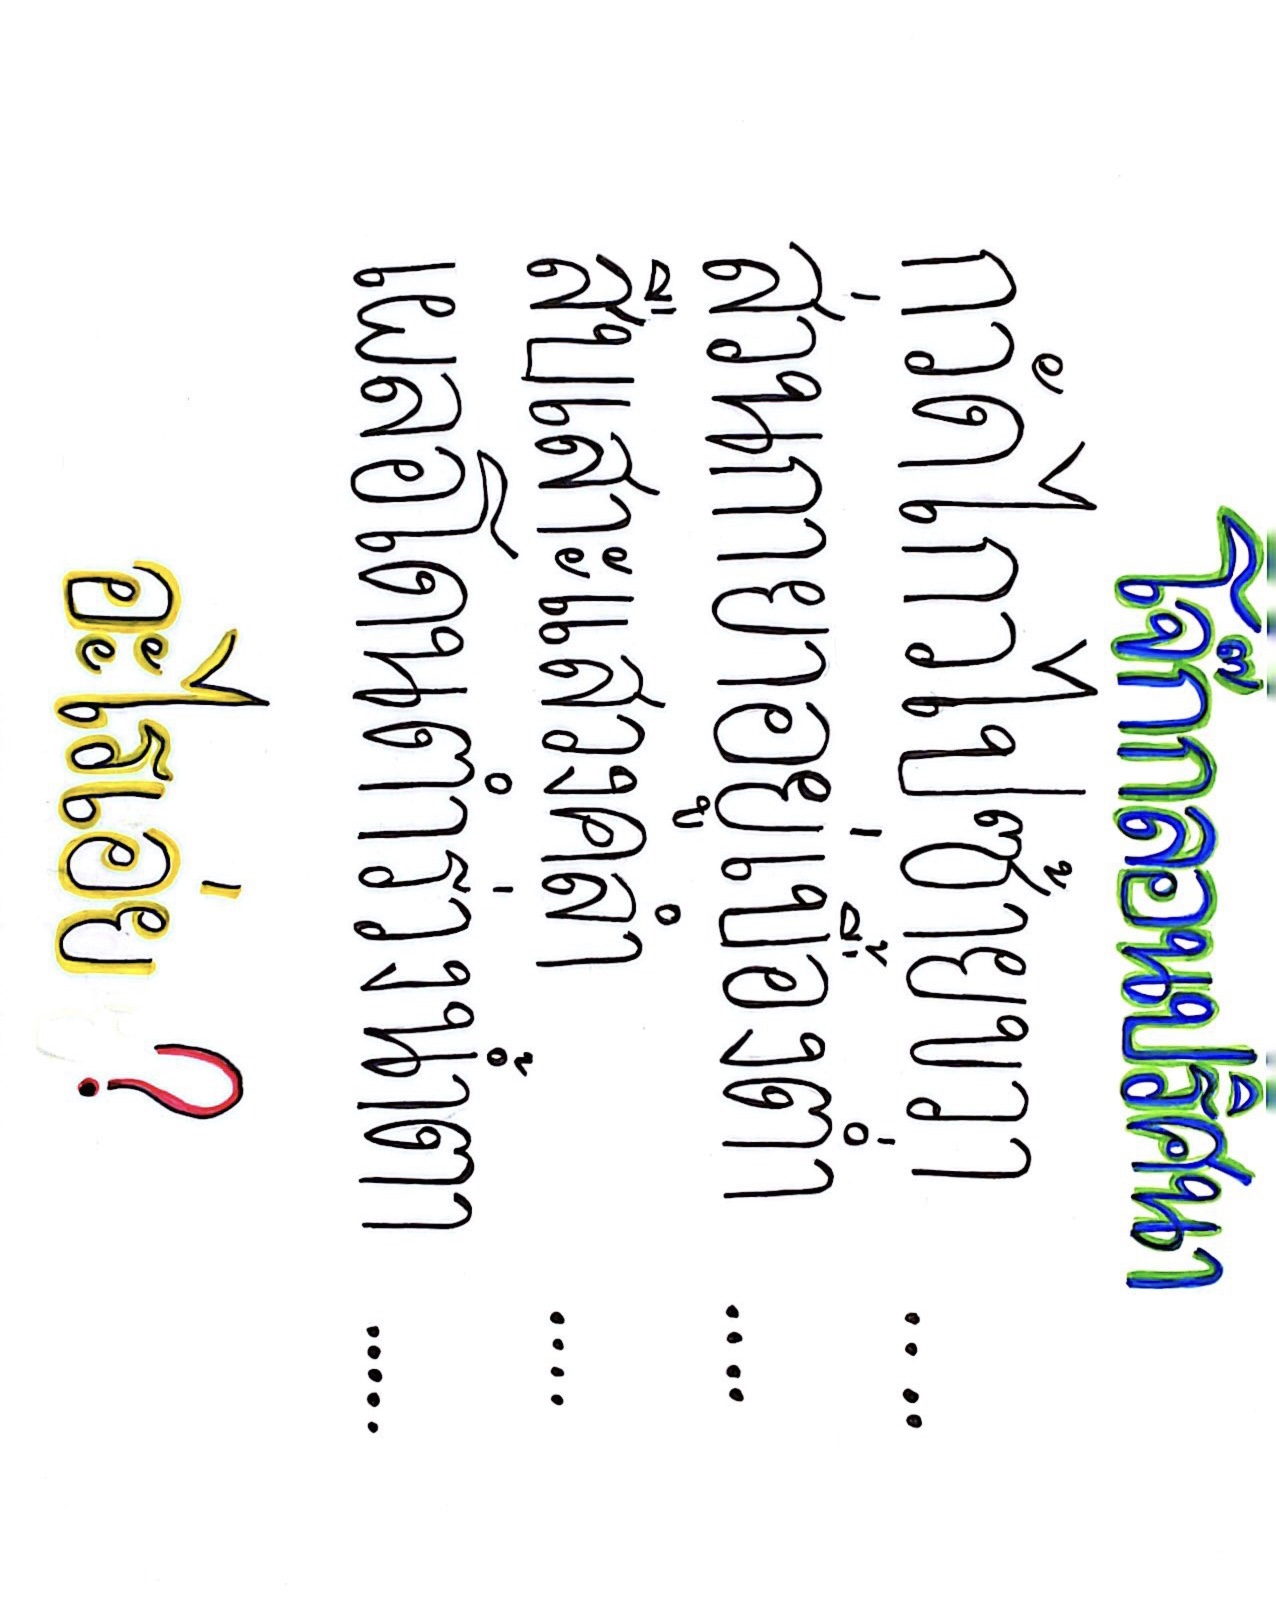 โจ๊กกลอนปริศนา
กวัดไกวไปซ้ายขวา ....
ส่วนกายาอยู่เบื้องต่ำ ....
สืบเสาะแสวงคลำ ....
เผลอโดนตำร่วงน้ำตา .....
อะไรเอ่ย ?